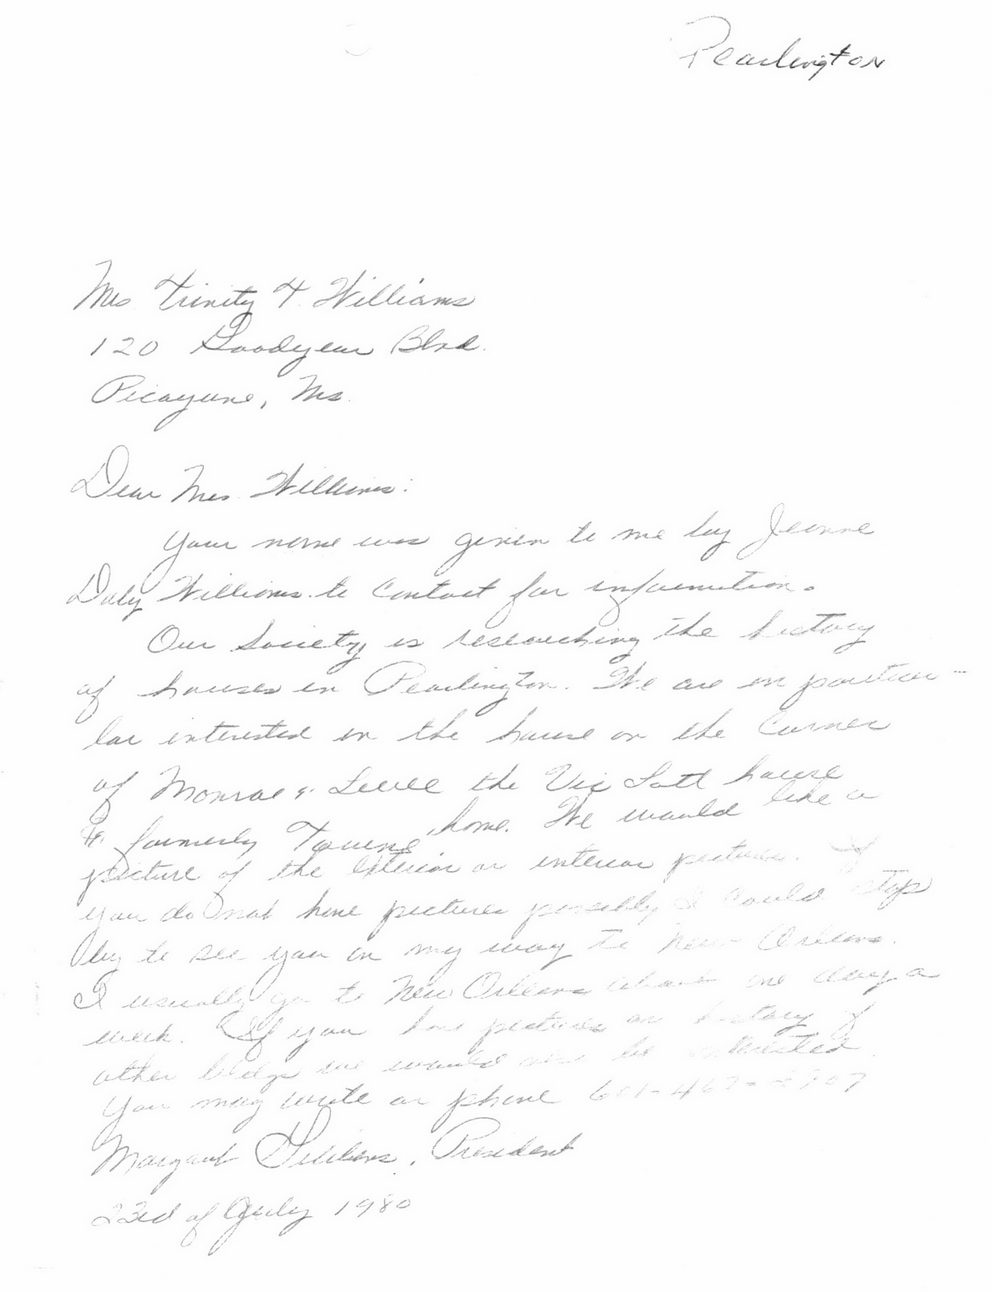 Pearlington
Mrs Trinity F. Williams
120 Goodyear Blvd.
Picayune, Ms.
Dear Mrs. Williams:
Your name was given to me by Jeanne
Daly Williams to contact for information.
Our Society is researching the history
of houses in Pearlington. We are in particu-
lar interested in the house on the corner
of Monroe & Levee the Vic Lott house
formerly Towne home. We would like a
picture of the exterior or interior picture. If
you do not have pictures possibly I could stop
by to see you on my way to New Orleans.
I usually go to New Orleans about one day a
week. If you have pictures or history of
other bldgs we would be interested.
You may write or phone 601-467-
Margaret Gibbens, President
23rd of July 1980